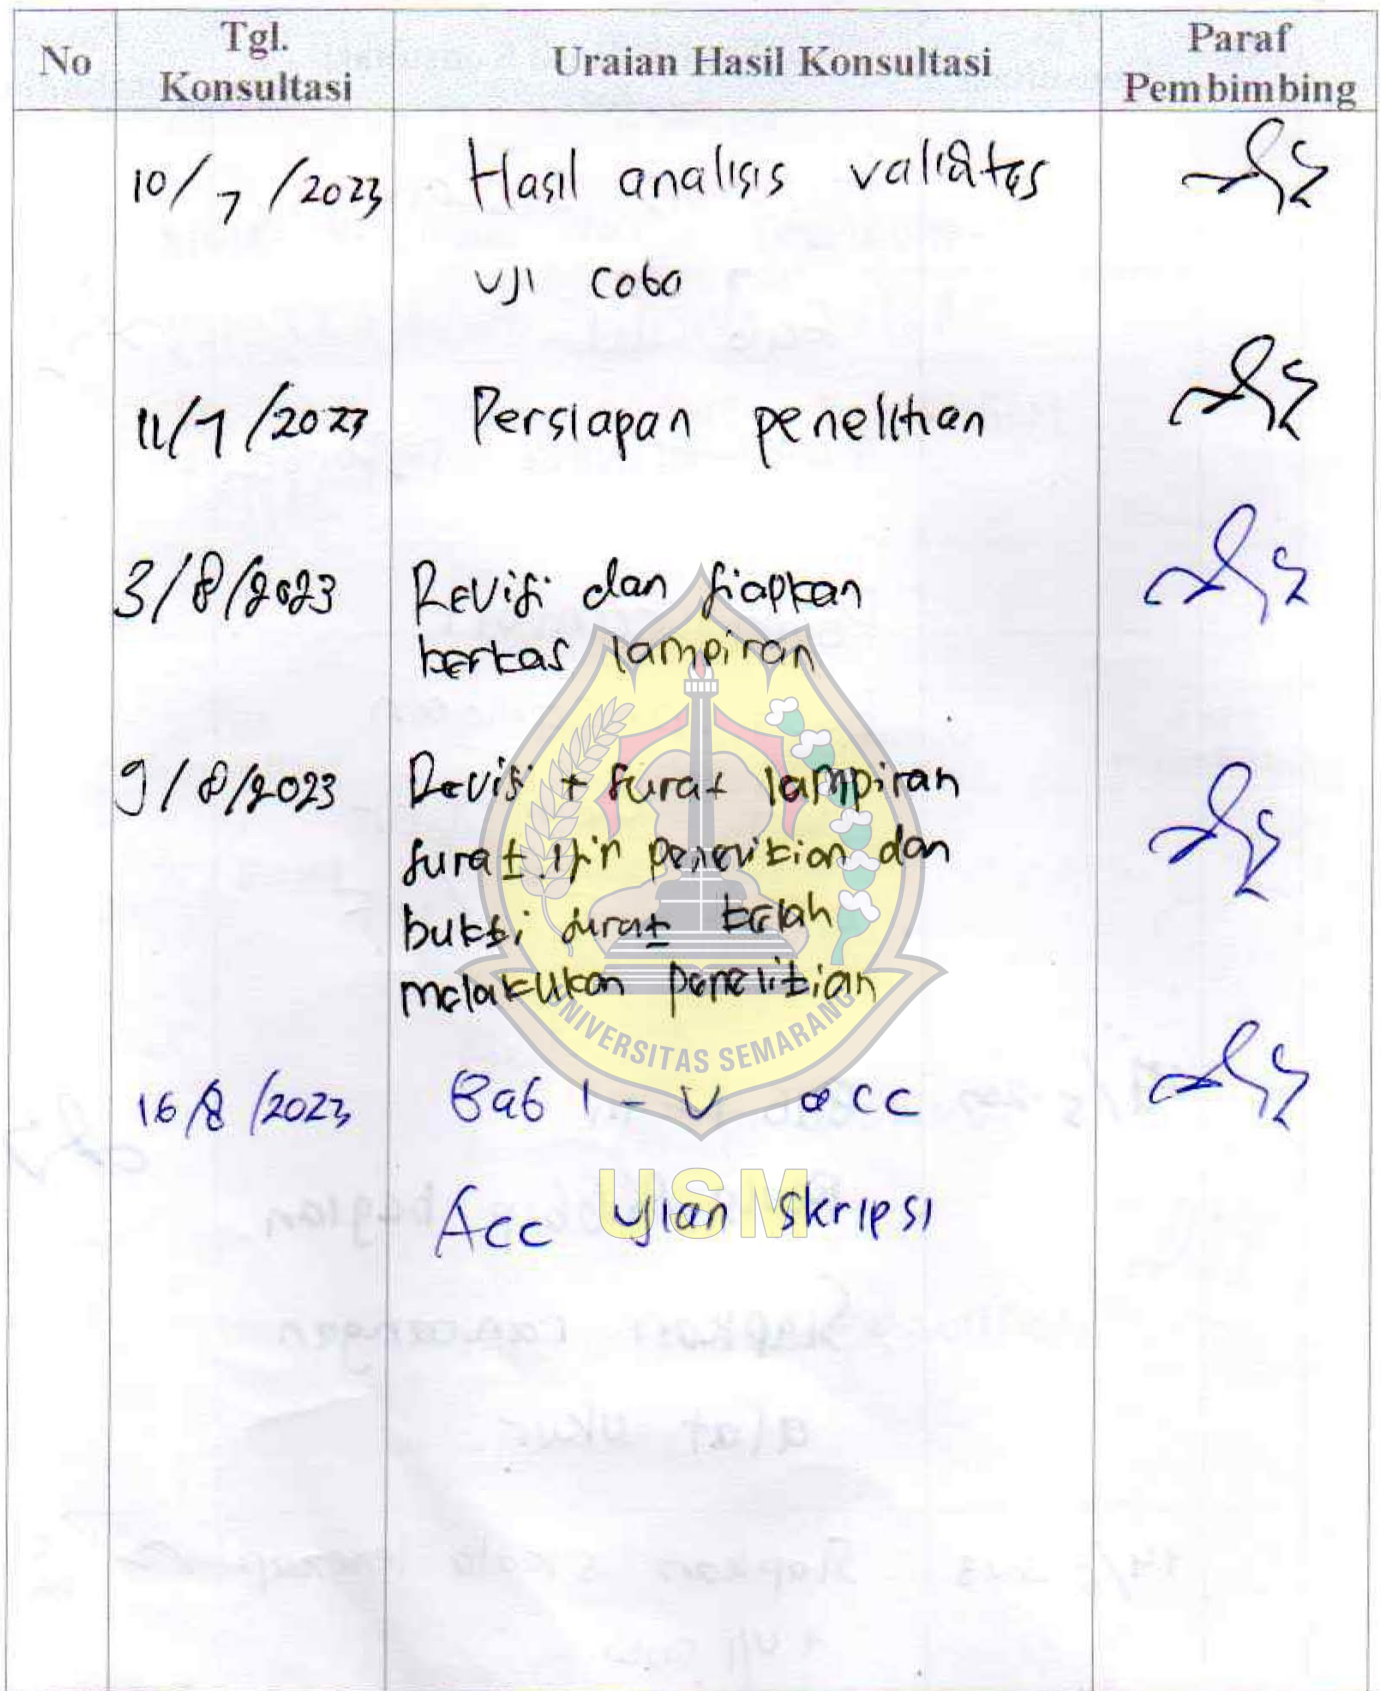 No Tgl. Konsultasi Uraian Hasil Konsultasi Paraf Pembimbing
10/7/2023 Hasil analisis validitas
uji coba
11/7/2023 Persiapan penelitian
3/8/2023 Revisi dan siapkan
berkas lampiran
9/8/2023 Revisi + surat lampiran
surat ijin penelitian dan
bukti surat telah
melakukan penelitian
UNIVERSITAS SEMARANG
16/8/2023 Bab I - V acc
USM
Acc Ujian Skripsi